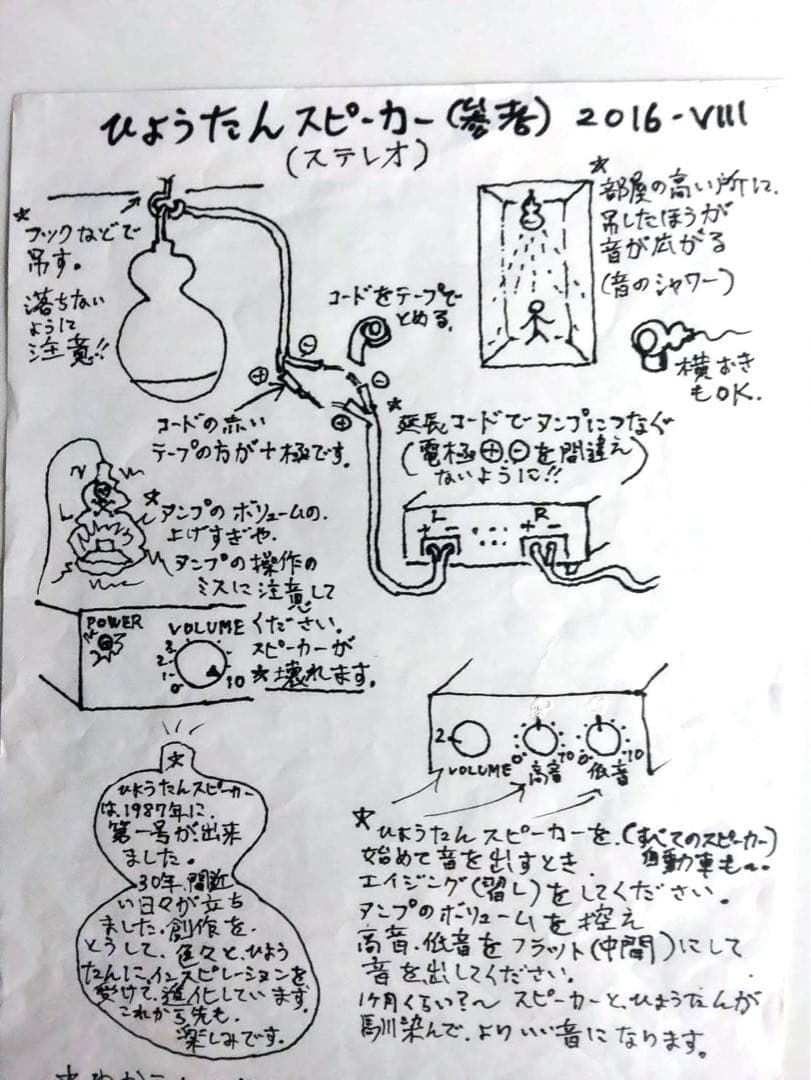 ひょうたんスピーカー(参考) 2016-VIII
(ステレオ)
★フックなどで
吊す。
落ちない
ように
注意!!
コードをテープで
とめる。
★部屋の高い所に、
吊したほうが
音が広がる
(音のシャワー)
横おき
もOK.
⊖
⊕
⊖
⊕
コードの赤い
テープの方が十極です。
★延長コードでアンプにつなぐ
(電極⊕,⊖を間違え
ないように!!)
L
R
+ -
+ -
★アンプのボリュームの、
上げすぎや、
アンプの操作の
ミスに注意して
ください。
スピーカーが
★壊れます。
POWER
VOLUME
3
2
1
0
10
2
VOLUME
0
10
高音
0
10
低音
★
ひょうたんスピーカー
は、1987年に、
第一号が出来
ました。
30年、間近
い日々が立ち
ました。創作を、
とうして、色々と、ひょう
たんに、インスピレーションを
受けて、進化しています。
これから先も、
楽しみです。
★ひょうたんスピーカーを、(すべてのスピーカー)
自動車も〜
始めて音を出すとき、
エイジング(習し)をしてください。
アンプのボリュームを控え
高音、低音をフラット(中間)にして
音を出してください。
1ヶ月くらい?〜スピーカーと、ひょうたんが
馴染んで、よりいい音になります。